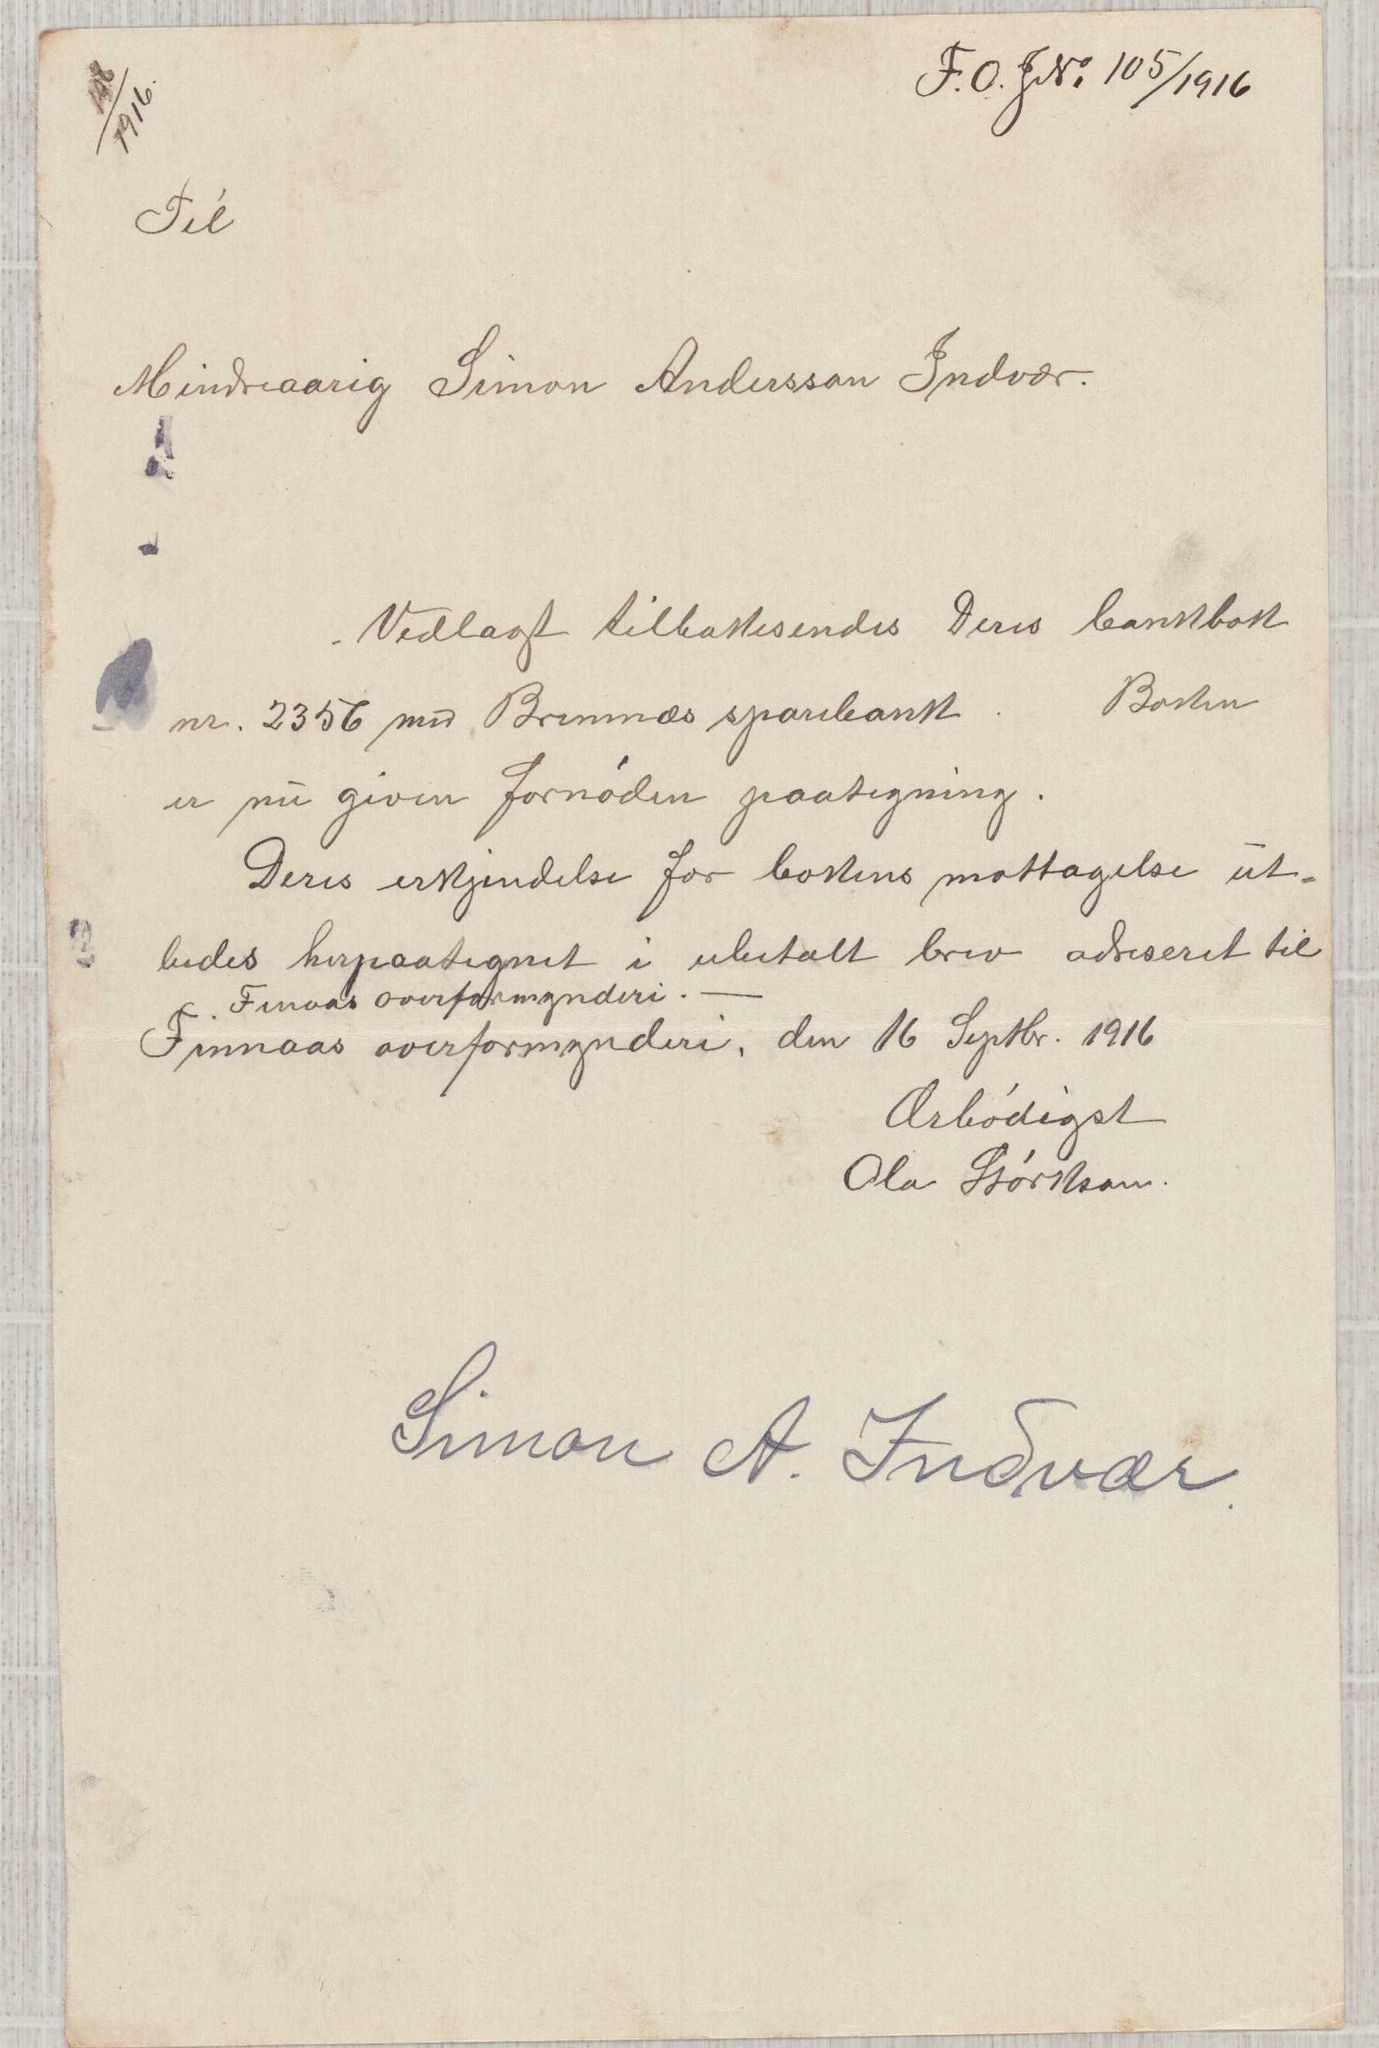 F.O. J№. 105/1916
/1916.
Til
Mindreaarig Simon Anderssøn Indvær.
Vedlagt tilbakesendes Deres bankbok
nr. 2356 med Bremnæs sparebank. Boken
er nu given fornøden paategning.
Deres erkjendelse for bokens mottagelse ut-
bedes herpaategnet i ubetalt brev adreseret til
Finnaas overformynderi. —
Finnaas overformynderi, den 16 Septbr. 1916
Ærbødigst
Ola Størksøn.
Simon A. Indvær.